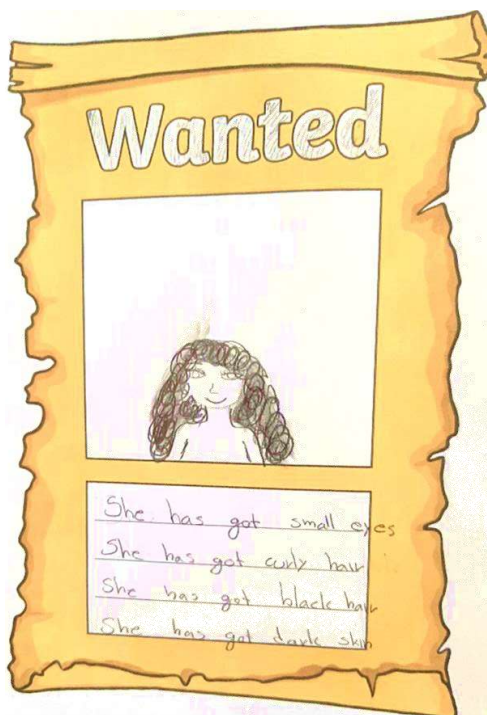 Wanted
She has got small eyes
She has got curly hair
She has got black hair
She has got dark skin